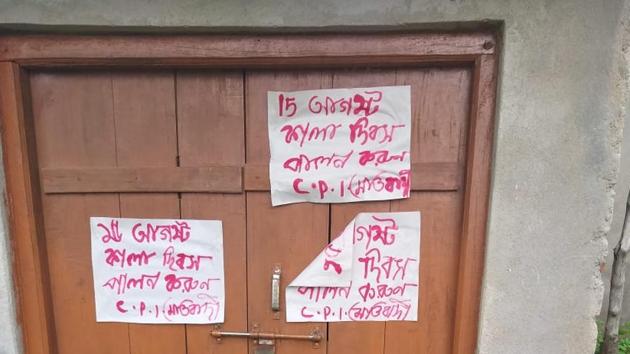 15 আগষ্ট
কালা দিবস
পালন করুন
C.P.I (মাওবাদী)
১৫ আগষ্ট
কালা দিবস
পালন করুন
C.P.I. (মাওবাদী)
গষ্ট
দিবস
পালন করুন
C.P.I. (মাওবাদী)